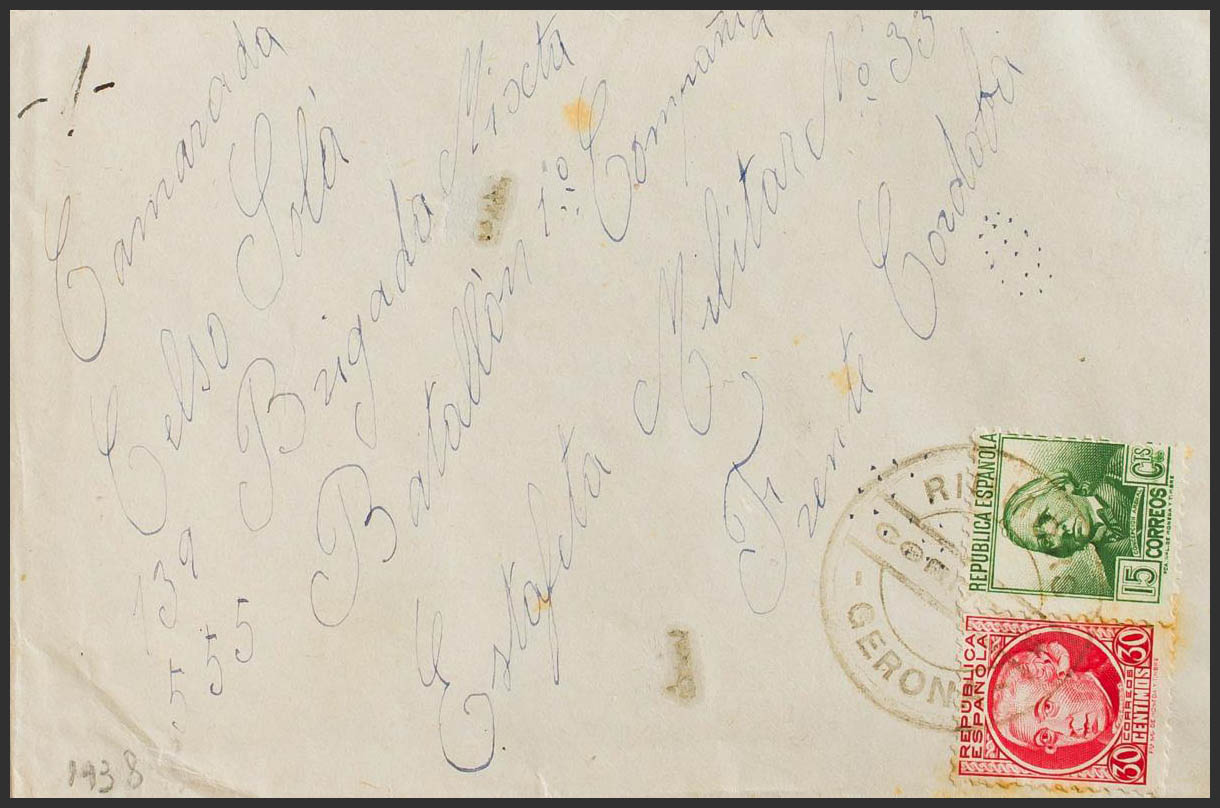 -1-
Camarada
Celso Solá
139 Brigada Mixta
555 Batallón 1º Compañia
Estafeta Militar Nº 33
Frente Cordoba
1938
CORREOS
- GERONA
REPUBLICA ESPAÑOLA
15 Cts
CORREOS
REPUBLICA
ESPAÑOLA
CORREOS
30 CENTIMOS 30